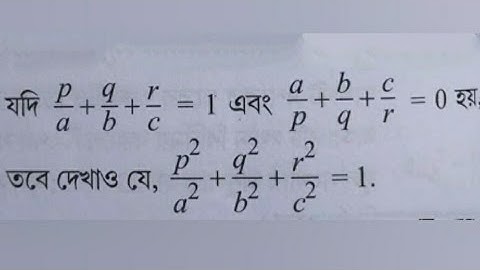 যদি p/a + q/b + r/c = 1 এবং a/p + b/q + c/r = 0 হয়,
তবে দেখাও যে, p²/a² + q²/b² + r²/c² = 1.